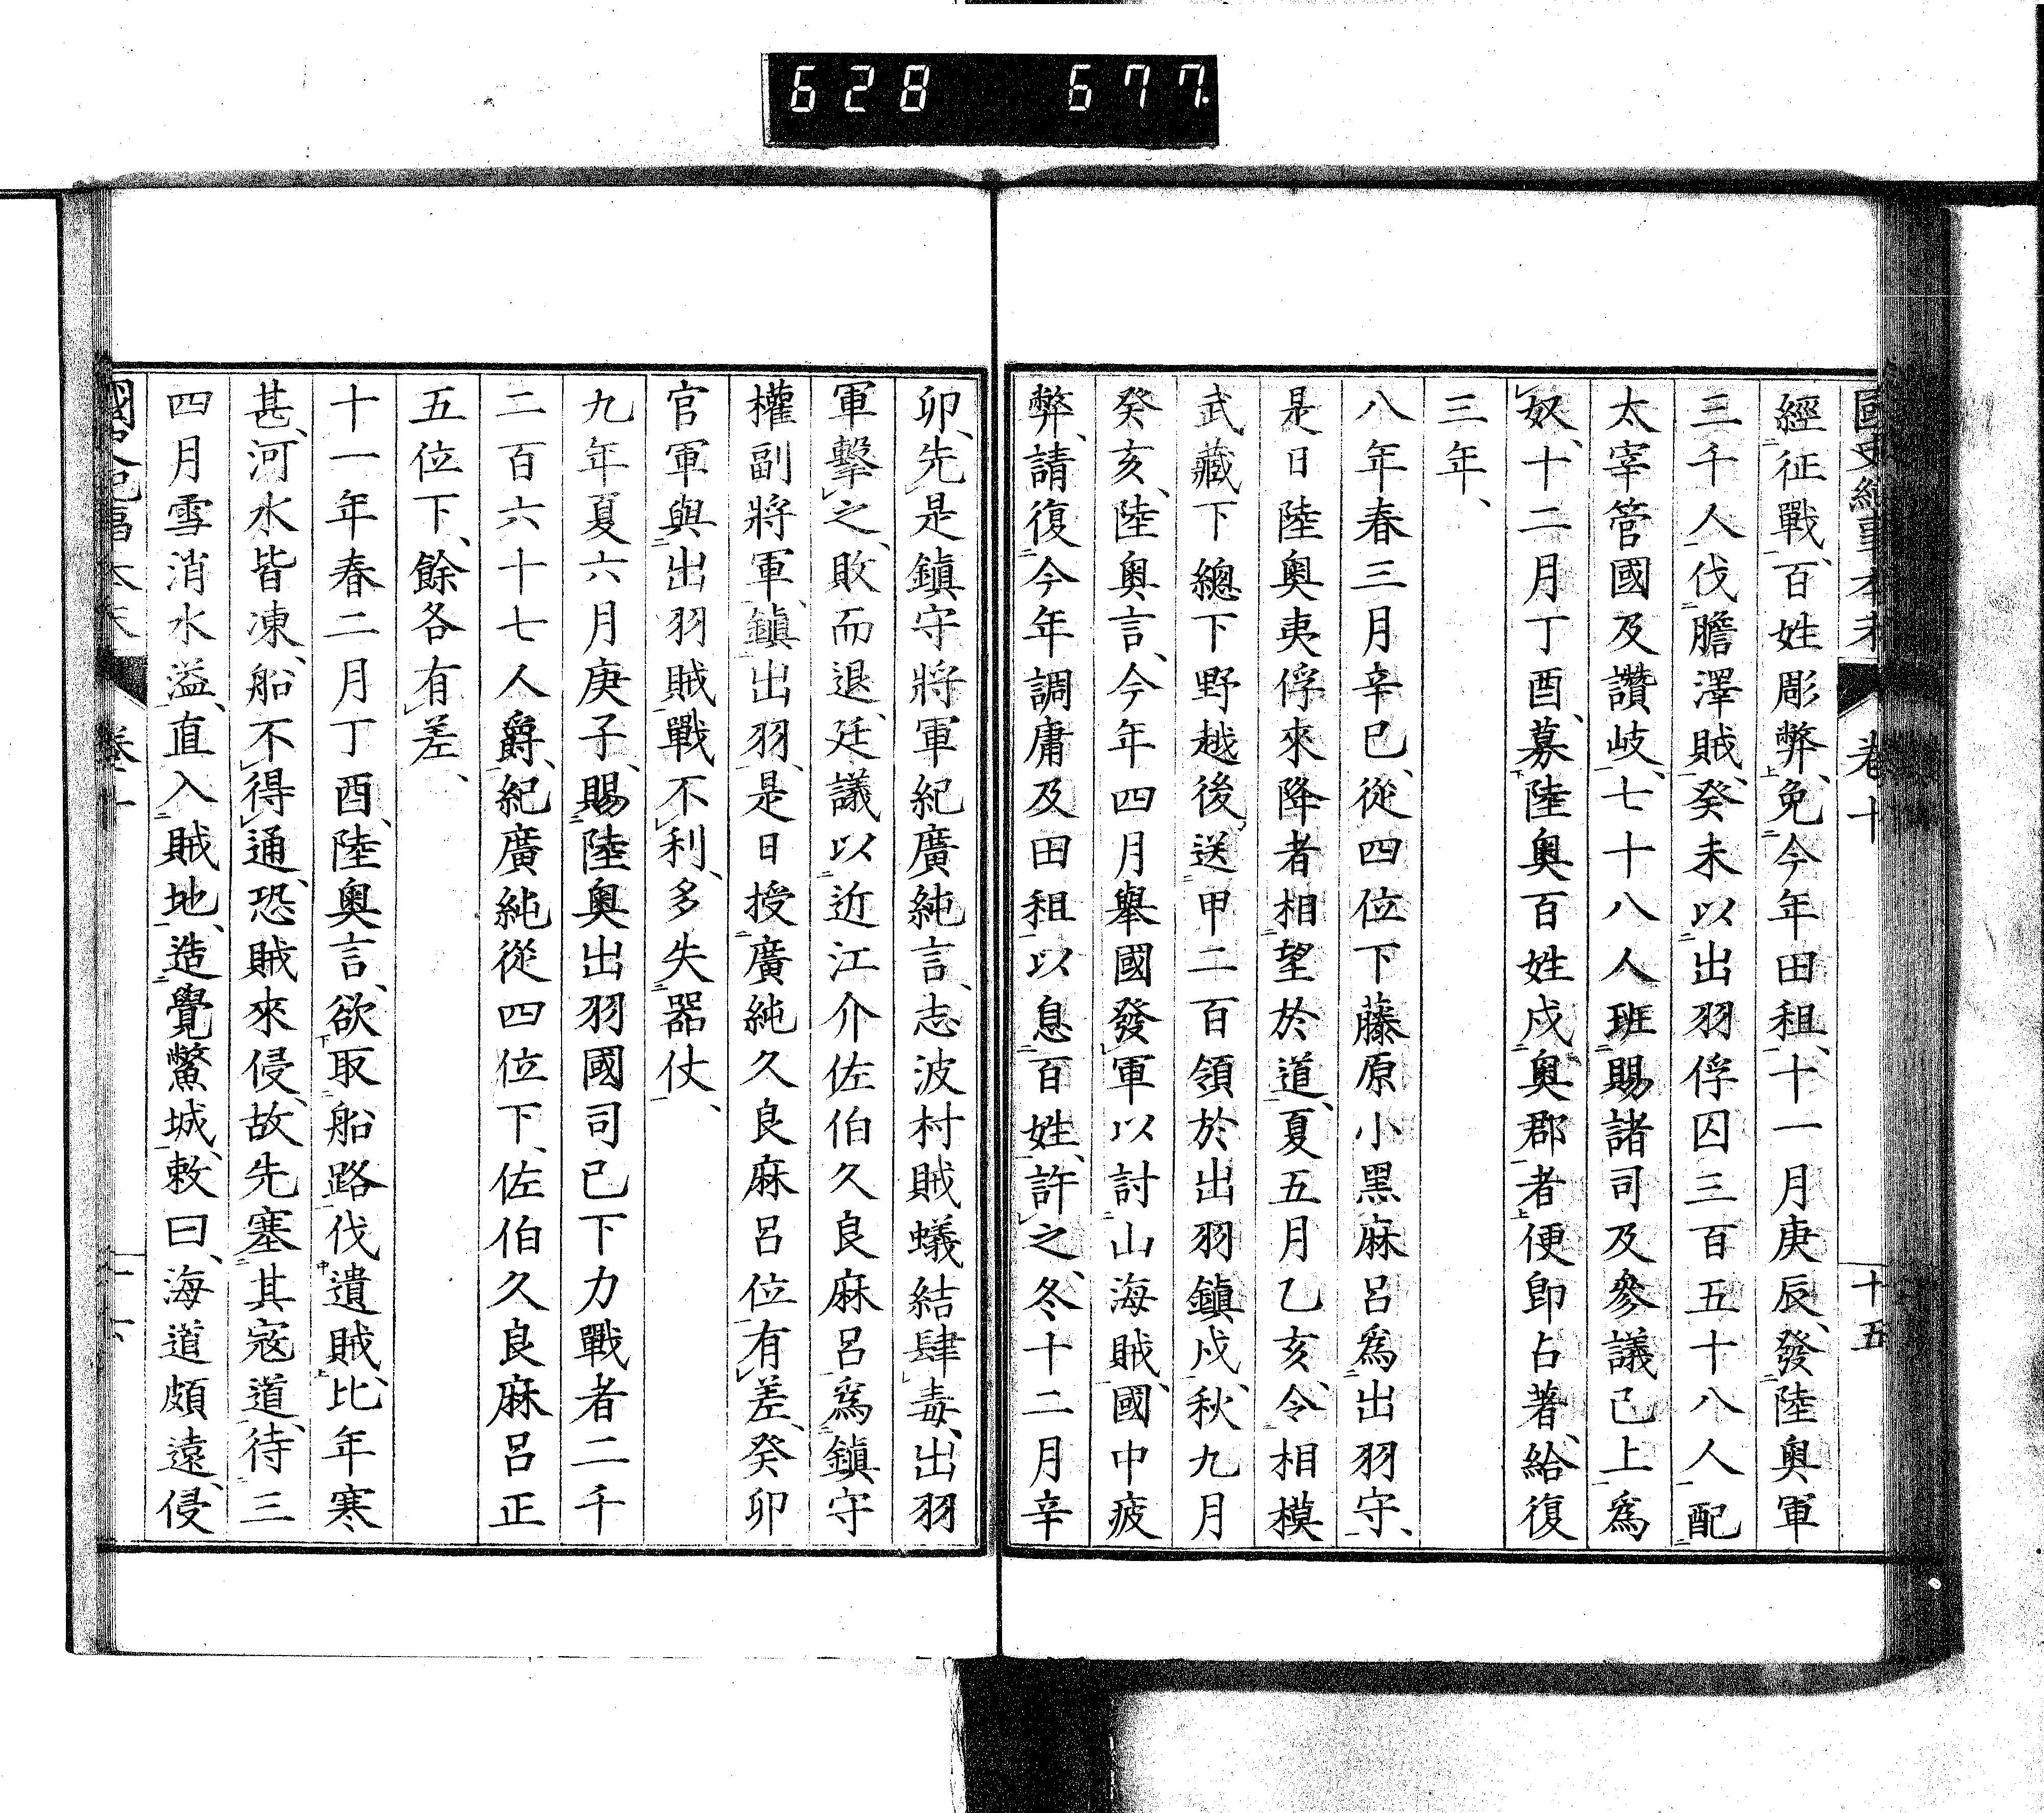 628 677.
國史紀事本末 卷十 十五
經征戰、百姓彫弊、免今年田租、十一月庚辰、發陸奥軍
三千人伐膽澤賊、癸未以出羽俘囚三百五十八人配
太宰管國及讚岐、七十八人班賜諸司及參議己上爲
奴、十二月丁酉、募陸奥百姓戍奥郡者便卽占著、給復
三年、
八年春三月辛巳、從四位下藤原小黑麻呂爲出羽守、
是日陸奥夷俘來降者相望於道、夏五月乙亥、令相模
武藏下總下野越後、送甲二百領於出羽鎭戍、秋九月
癸亥、陸奥言、今年四月舉國發軍以討山海賊、國中疲
弊、請復今年調庸及田租以息百姓、許之、冬十二月辛
卯、先是鎭守將軍紀廣純言、志波村賊蟻結肆毒、出羽
軍擊之、敗而退、廷議以近江介佐伯久良麻呂爲鎭守
權副將軍、鎭出羽、是日授廣純久良麻呂位有差、癸卯
官軍與出羽賊戰不利、多失器仗、
九年夏六月庚子、賜陸奥出羽國司已下力戰者二千
二百六十七人爵、紀廣純從四位下、佐伯久良麻呂正
五位下、餘各有差、
十一年春二月丁酉、陸奥言、欲取船路伐遺賊、比年寒
甚、河水皆凍、船不得通、恐賊來侵、故先塞其寇道、待三
四月雪消水溢、直入賊地、造覺鱉城、敕曰、海道頗遠、侵
國史紀事本末 卷十